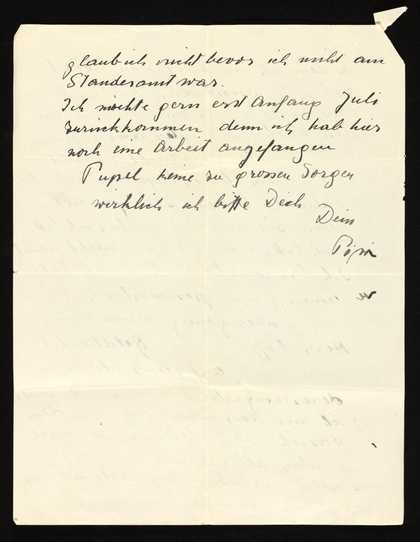 glaub ich nicht bevor ich nicht am
Standesamt war.
Ich möchte gern erst Anfang Juli
zurückkommen denn ich hab hier
noch eine Arbeit angefangen
Pupsel keine zu grossen Sorgen
wirklich - ich bitte Dich
Dein